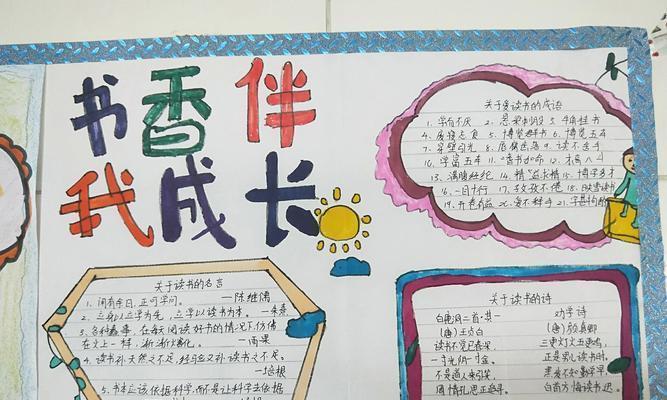 书香伴
我成长
关于爱读书的成语
1. 学而不厌
5. 牛角挂书
4. 废寝忘食 5. 博览群书 6. 博览五车
7. 凿壁匀光 8. 废寝忘食 9. 读不舍手
10. 学富五车 11. 嗜书如命 12. 
13. 满腹经纶 14. 精益求精 15. 博学多才
16. 一目十行 17. 孜孜不倦 18. 映雪读书
19. 开卷有益 20. 爱不释手 21.
关于读书的名言
1. 闲有余日,正可学问。 —陈继儒
2. 立身以立学为先,立学以读书为本。 —朱熹
3. 各种蠢事,在每天阅读好书的情况下,仿佛
在火上一样,渐渐熔化。 —雨果
4. 读书补天然之不足,经验又补读书之不足。
—培根
5. 书本应该依据科学,而不是让科学去依据
关于读书的诗
白鹿洞二首·其一
(唐)王贞白
读书不觉已春深,
一寸光阴一寸金。
不是道人来引笑,
周情孔思正追寻。
劝学诗
(唐)颜真卿
三更灯火五更鸡,
正是男儿读书时。
黑发不知勤学早,
白首方悔读书迟。